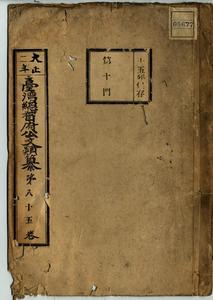 大正二年
臺灣總督府公文類纂
第八十五卷
十五年保存
第十門